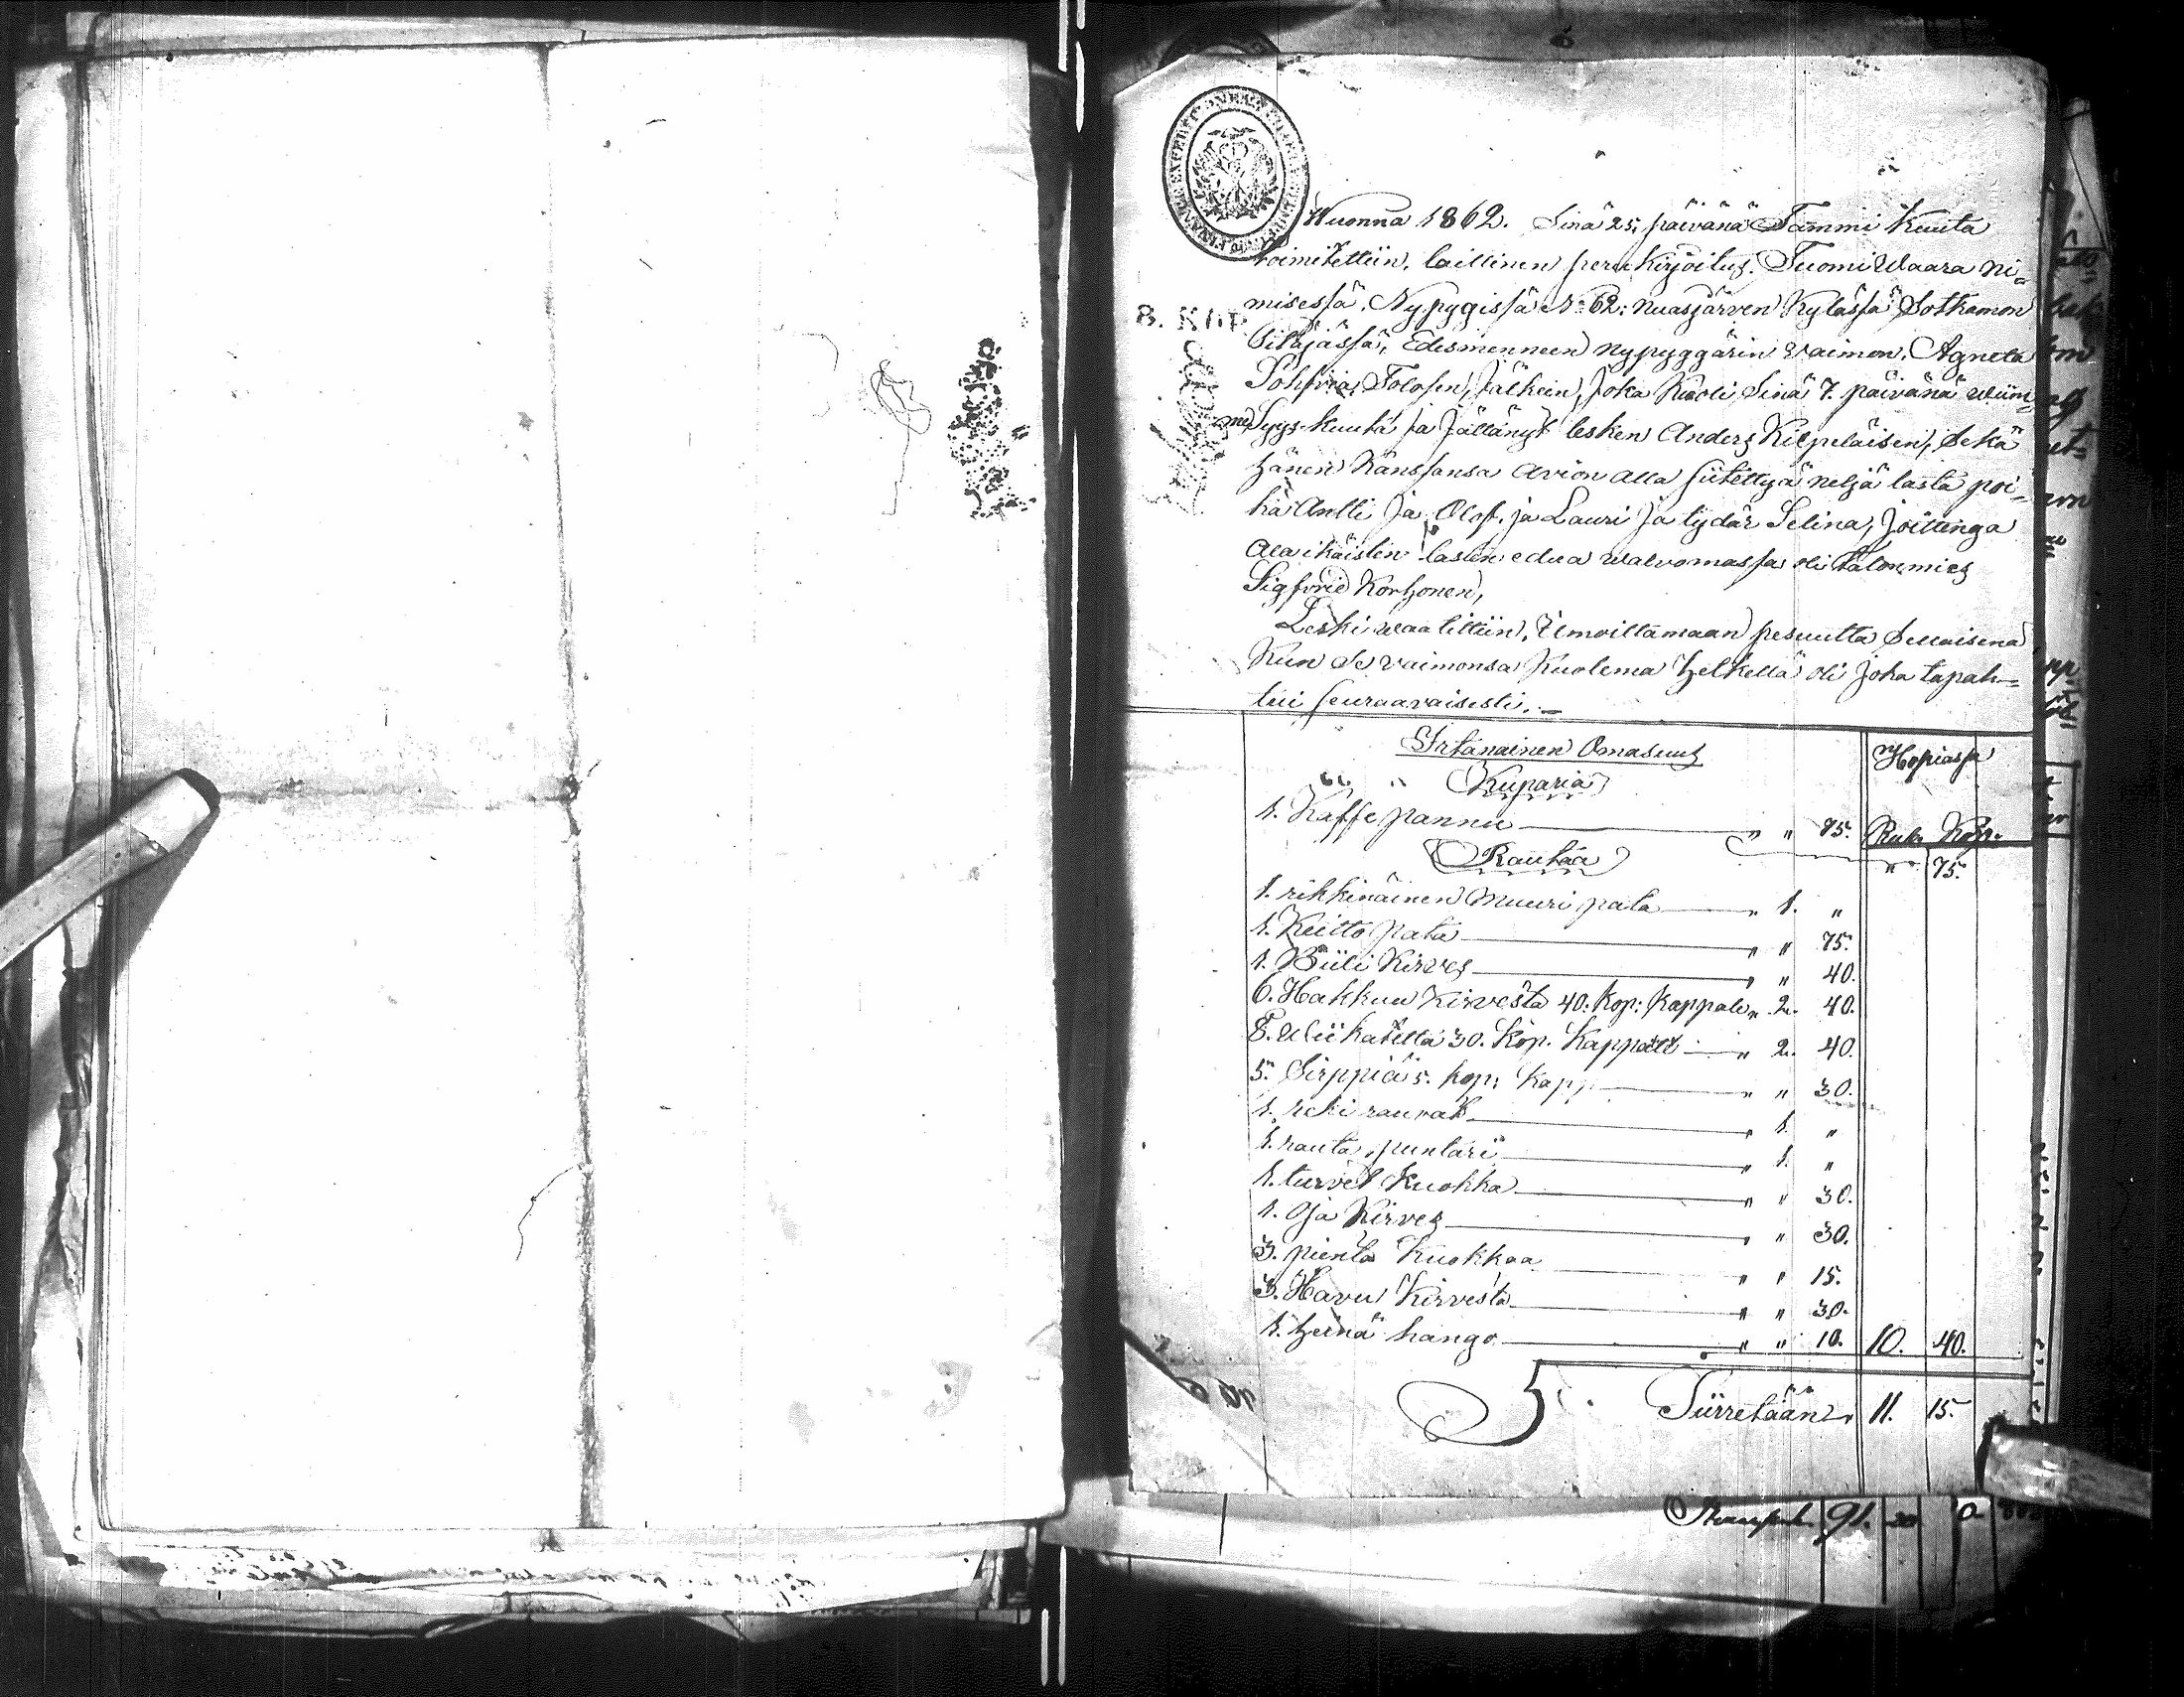 Wuonna 1862. Sinä 25: päivänä Tammi Kuuta
toimitettiin, laillinen perukirjoitus. Tuomi Waara ni=
misessä, Nypygissä No 62: Nuasjärven Kylässä Sotkamon
8. KOP.
Pitäjässä, Edesmenneen nypyggärin Vaimon, Agneta
Sohfvia, Tolosen, Jälkein, Joka Kuoli, Sinä 7. päivänä wiim=
me Syys kuuta ja Jättänyt lesken Anders Kilpeläisen, Sekä
hänen Kanssansa Avion alla siitettyä neljä lasta poi=
ka Antti Ja Olof. ja Lauri Ja tydär Selina, Joittenga
Ala ikäisten lasten edua walvomassa oli Talon mies
Sigfrid Korhonen,
Leski waalittiin, Ilmoittamaan pesuutta Sellaisena
Kun Se vaimonsa Kuolema hetkellä oli Joka tapah=
tui seuraavaisesti. —
Irtanainen Omasuus
Hopiassa
Kuparia
1. Kaffe pannu " " 75. Rub. Kop.
" 75.
Rautaa
1. rikkinäinen Muuri pata " 1. "
1. Keitto pata " " 75.
1. Piili Kirves " " 40.
6. Hakkuu Kirvestä 40: Kop: Kappale " 2. 40.
8. Wiikatetta 30. Kop. Kappale " 2. 40.
5. Sirppiä 5. kop: Kapp " " 30.
1. reki rauvat " 1. "
1. rauta puntari " 1. "
1. turvet Kuokka " " 30.
1. Oja Kirves " " 30.
3. pientä Kuokkaa " " 15.
3. Havu Kirvestä " " 30.
1. heinä hango " " 10. 10. 40.
Siirretään 11. 15.
91. 20